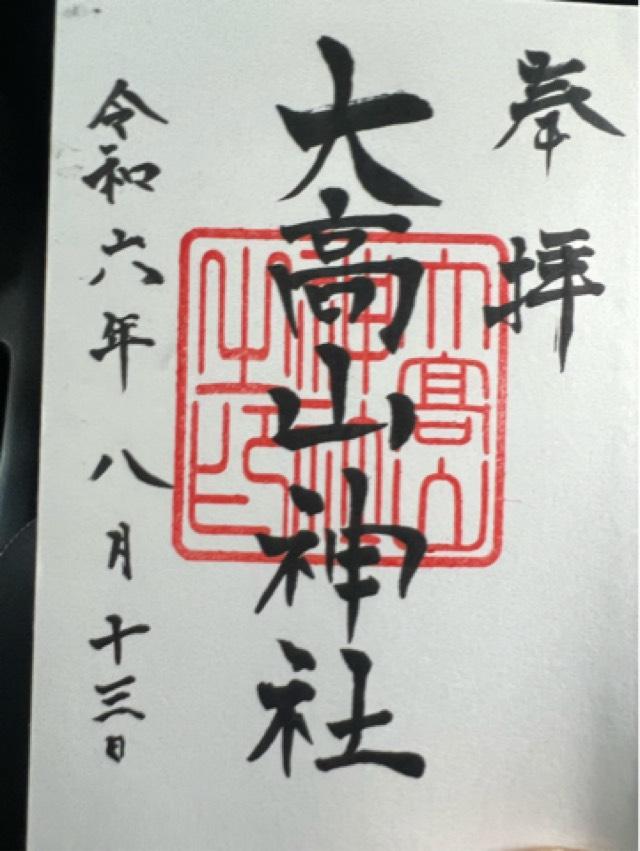 奉拝
大高山神社
令和六年八月十三日
大高山
神社
之印